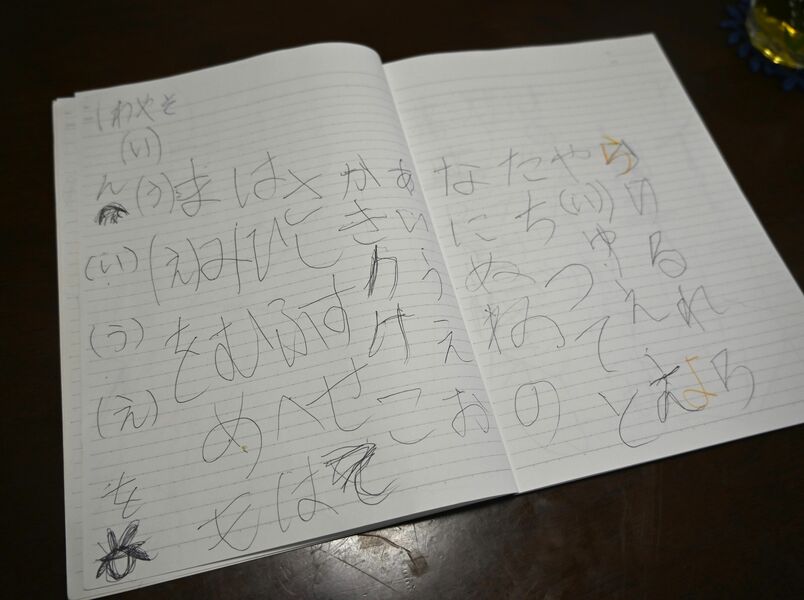 らりるれろ
や(い)ゆえよ
たちつてと
なにぬねの
あいうえお
かきけこ
さしすせ
はひふへは
まみむめも
しわやそ
(い)(う)(え)を
ん(い)(う)(え)を